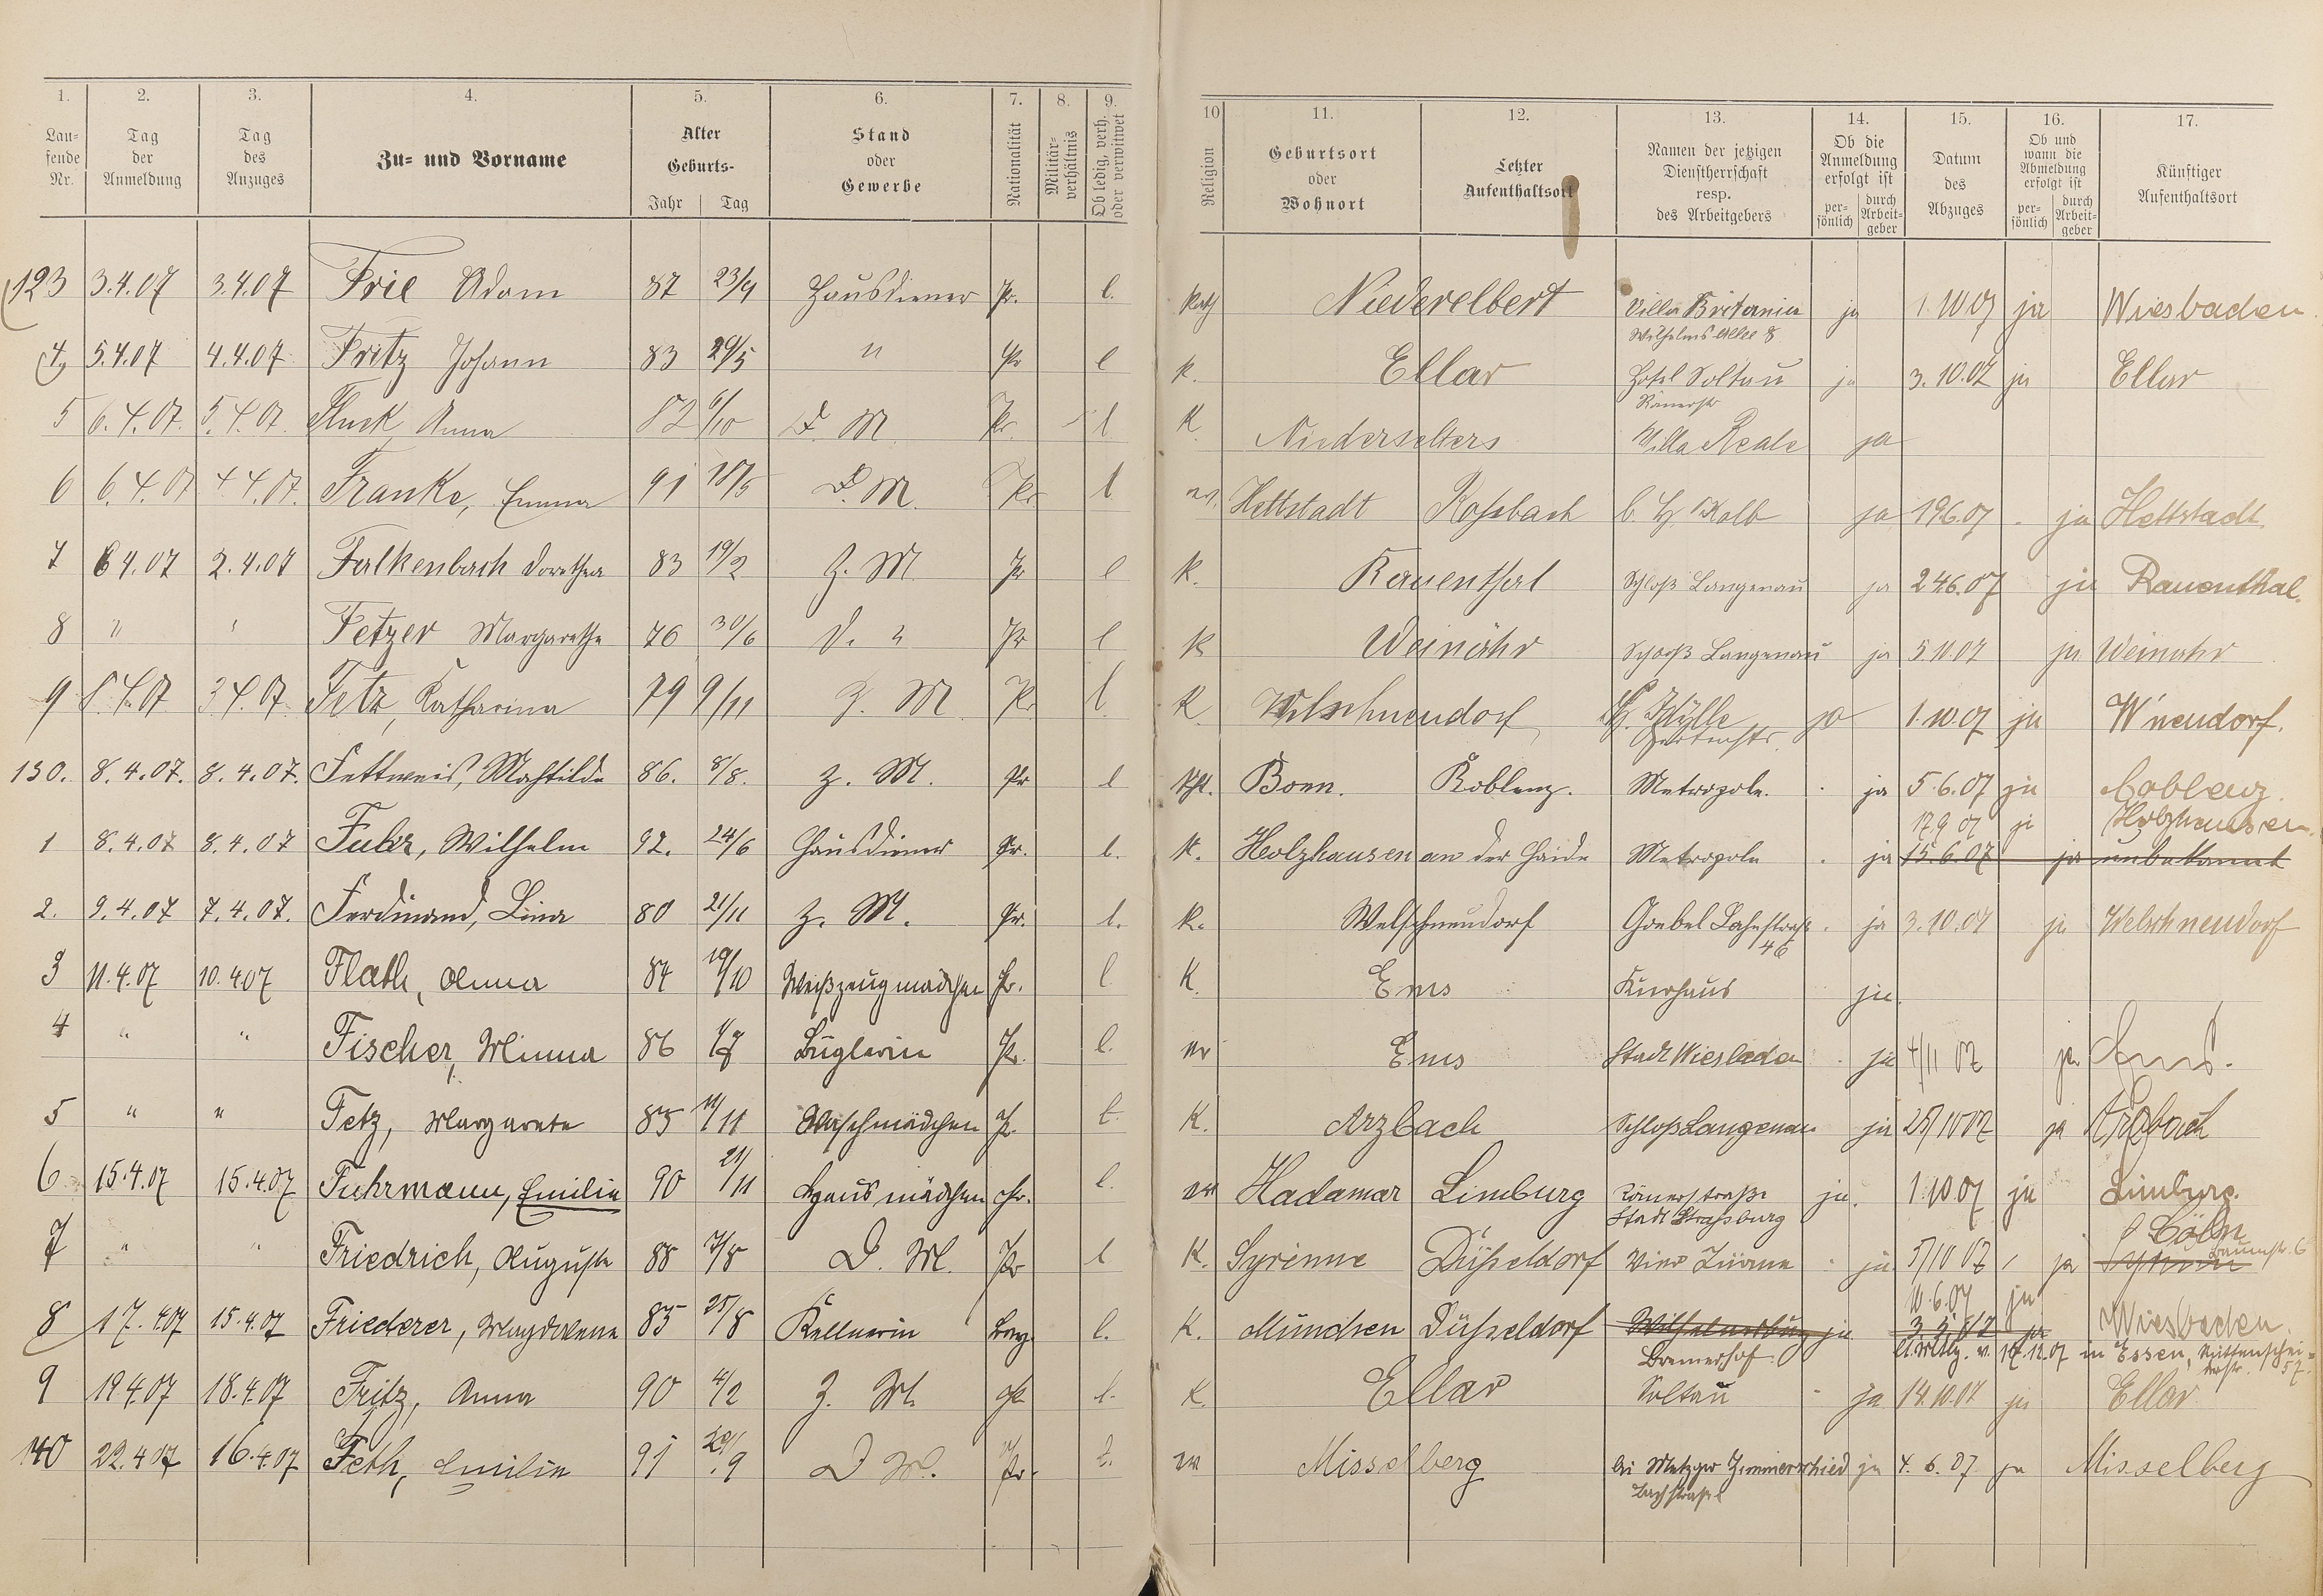 1. 2. 3. 4. 5. 6. 7. 8. 9. 10 11. 12. 13. 14. 15. 16. 17.
Lau-
fende
Nr.
Tag
der
Anmeldung
Tag
des
Anzuges
Zu- und Vorname
Alter
Geburts-
Jahr Tag
Stand
oder
Gewerbe
Nationalität
Militär-
verhältnis
Ob ledig, verh.
oder verwitwet
Religion
Geburtsort
oder
Wohnort
Letzter
Aufenthaltsort
Namen der jetzigen
Dienstherrschaft
resp.
des Arbeitgebers
Ob die
Anmeldung
erfolgt ist
per-
sönlich
durch
Arbeit-
geber
Datum
des
Abzuges
Ob und
wann die
Abmeldung
erfolgt ist
per-
sönlich
durch
Arbeit-
geber
Künftiger
Aufenthaltsort
123 3.4.07 3.4.07 Frie Adam 87 23/9 Hausdiener Pr. l. Kath Niederelbert Villa Britania ja 1.10 07 ja Wiesbaden
Wilhelms Allee 8
4, 5.4.07 4.4.07 Fritz Johann 83 29/5 " Pr l K. Ellar Hotel Soltau ja 3.10.07 ja Ellar
Römerstr
5 6.4.07. 5.4.07. Fluck Anna 82 6/10 D. M. Pr. l K. Niederselters Villa Reale ja
6 6.4.07 4 4.07. Franke, Emma 91 18/5 D. M. Pr l Hettstadt Rossbach b. H. Kolb ja 19 6.07 ja Hettstadt.
7 6 4.07 2.4.07 Falkenbach Dorothea 83 19/2 Z. M. Pr l K. Rauenthal Schloß Langenau ja 24 6.07 ja Rauenthal.
8 " " Fetzer Margarethe 76 30/6 D. " Pr l K Weinähr Schloß Langenau ja 5.10.07 ja Weinähr
9 8.4.07 3.4.07. Fetz, Katharina 79 9/11 Z. M. Pr l. K. Welschneudorf H. Idylle ja 1.10.07 ja W'neudorf.
130. 8.4.07. 8.4.07. Fettweis, Mathilde 86. 8/8. Z. M. Pr l Kth. Bonn. Koblenz. Metropole. ja 5.6.07 ja Coblenz.
17.9 07 ja Holzhausen
1 8.4.07 8.4.07 Fuhr, Wilhelm 92. 24/6 Hausdiener Pr. l. K. Holzhausen an der Haide Metropole ja 15.6.07 ja unbekannt
2. 9.4.07 7.4.07. Ferdinand, Lina 80 21/11 Z. M. Pr. l. K. Welschneudorf Goebel Lahnstraße ja 3.10.07 ja Welschneudorf
46
3 11.4.07 10.4.07 Flath, Anna 84 19/10 Weißzeugmädchen Pr. l K. Ems Kurhaus ja.
4 " " Fischer, Minna 86 Büglerin Pr. l. Ems Stadt Wiesbaden ja 4/11 07 ja Ems.
5 " " Fetz, Margarete 85 11/11 Waschmädchen Pr. l. K. Arzbach Schloß Langenau ja 25/10 07 ja Arzbach
6 15.4.07 15.4.07 Fuhrmann, Emilie 90 21/11 Hausmädchen Pr. l. Hadamar Limburg Römerstraße ja. 1.10 07 ja Limburg.
Stadt Straßburg
Cöln
7 " " Friedrich, Auguste 88 7/8 D. M. Pr l K. Syrenne Düsseldorf Vier Türme ja 5/10 07 ja
10.6.07 ja
8 17.4.07 15.4.07 Friederer, Magdalena 85 25/8 Kellnerin Bay. l. K. München Düsseldorf Wilhelmsburg ja 3.5.07 ja Wiesbaden.
Bremerhof. lt. Mttlg. v. 17.12.07 in Essen, Rüttenschei-
derstr. 57.
9 19.4.07 18.4.07 Fritz, Anna 90 4/2 Z. M. Pr l. K. Ellar Soltau ja 14.10.07 ja Ellar
140 22.4 07 16.4.07 Feth, Emilie 91 29/9 D M. Pr. l. Misselberg bei Metzger Zimmerschied ja 4.6.07 ja Misselberg
Bachstraße